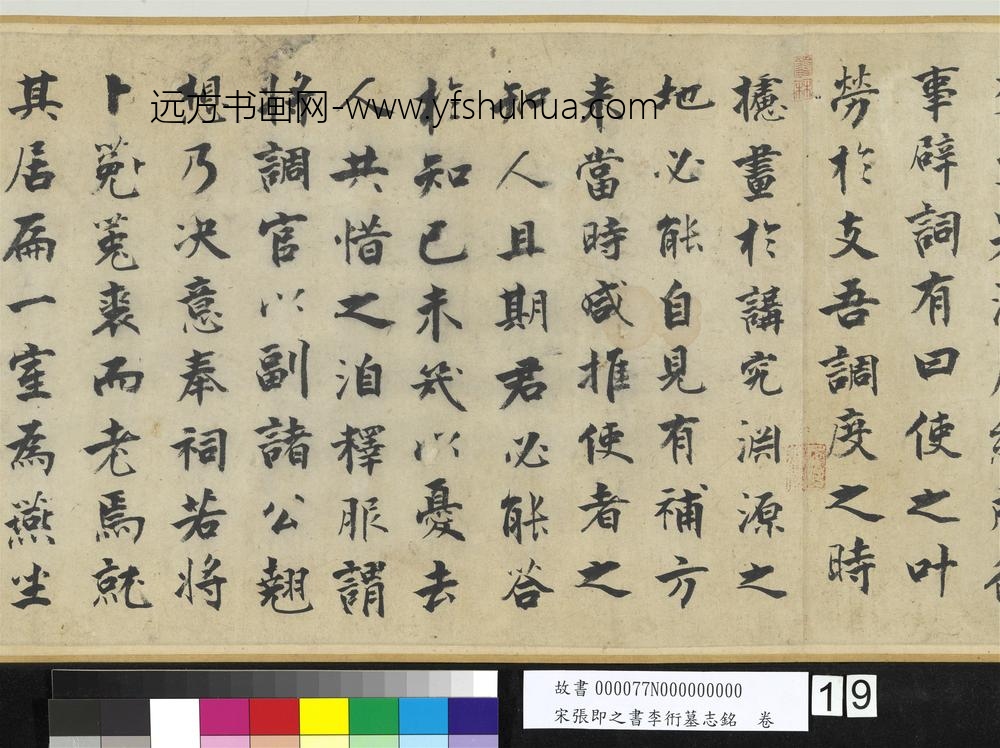 事辟詞有曰使之叶
勞於支吾調度之時
攄畫於講究淵源之
地必能自見有補方
来當時咸推使者之
知人且期君必能荅
於知已未幾以憂去
人共惜之洎釋服謂
將調官以副諸公翹
想乃决意奉祠若将
卜菟裘而老焉就
其居扁一室為燕坐
远方书画网-www.yfshuhua.com
故書 000077N000000000
宋張即之書李衎墓志銘 卷
19